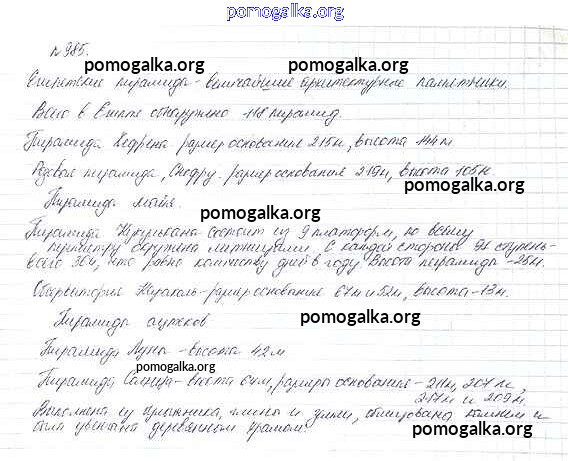 pomogalka.org
№985.
pomogalka.org pomogalka.org
Египетские пирамиды - величайшие архитектурные памятники.
Всего в Египте обнаружено - 118 пирамид.
pomogalka.org
Пирамида Хефрена размер основания 215м, высота 144м
Розовая пирамида, Снофру. размер основания 219м, высота 105м.
pomogalka.org
Пирамида майя.
pomogalka.org
Пирамида Кукулькана состоит из 9 платформ, по всему
периметру окружена лестницами. С каждой стороны 91 ступень-
всего 364, что равно количеству дней в году. Высота пирамиды - 25м.
pomogalka.org
Обсерватория Караколь - размер основание 67м и 52м, высота - 13м.
Пирамида ацтеков
pomogalka.org
Пирамида Луны - высота 42м
pomogalka.org
Пирамида Солнца - высота 64м, размеры основание - 211м, 207м,
217м и 209м.
Выполнена из булыжника, глины и земли, облицована камнем и
была увенчана деревянным храмом.
pomogalka.org